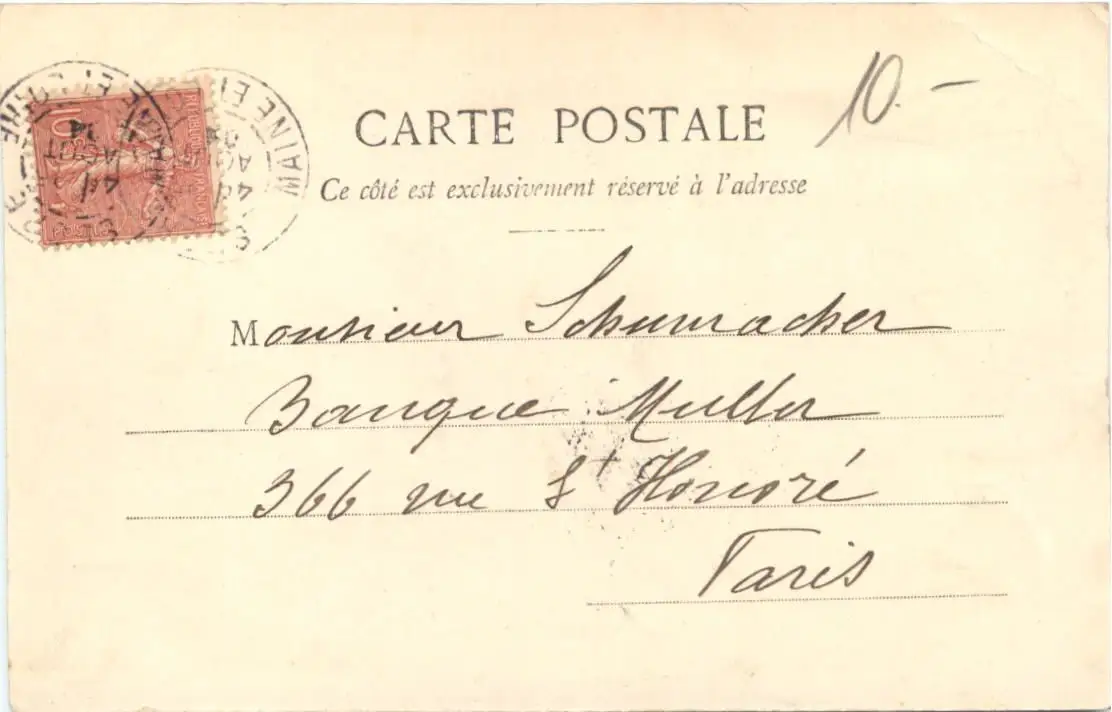 10.-
CARTE POSTALE
Ce côté est exclusivement réservé à l'adresse
Monsieur Schumacher
Banque Muller
366 rue St Honoré
Paris
MAINE ET
10
AOUT